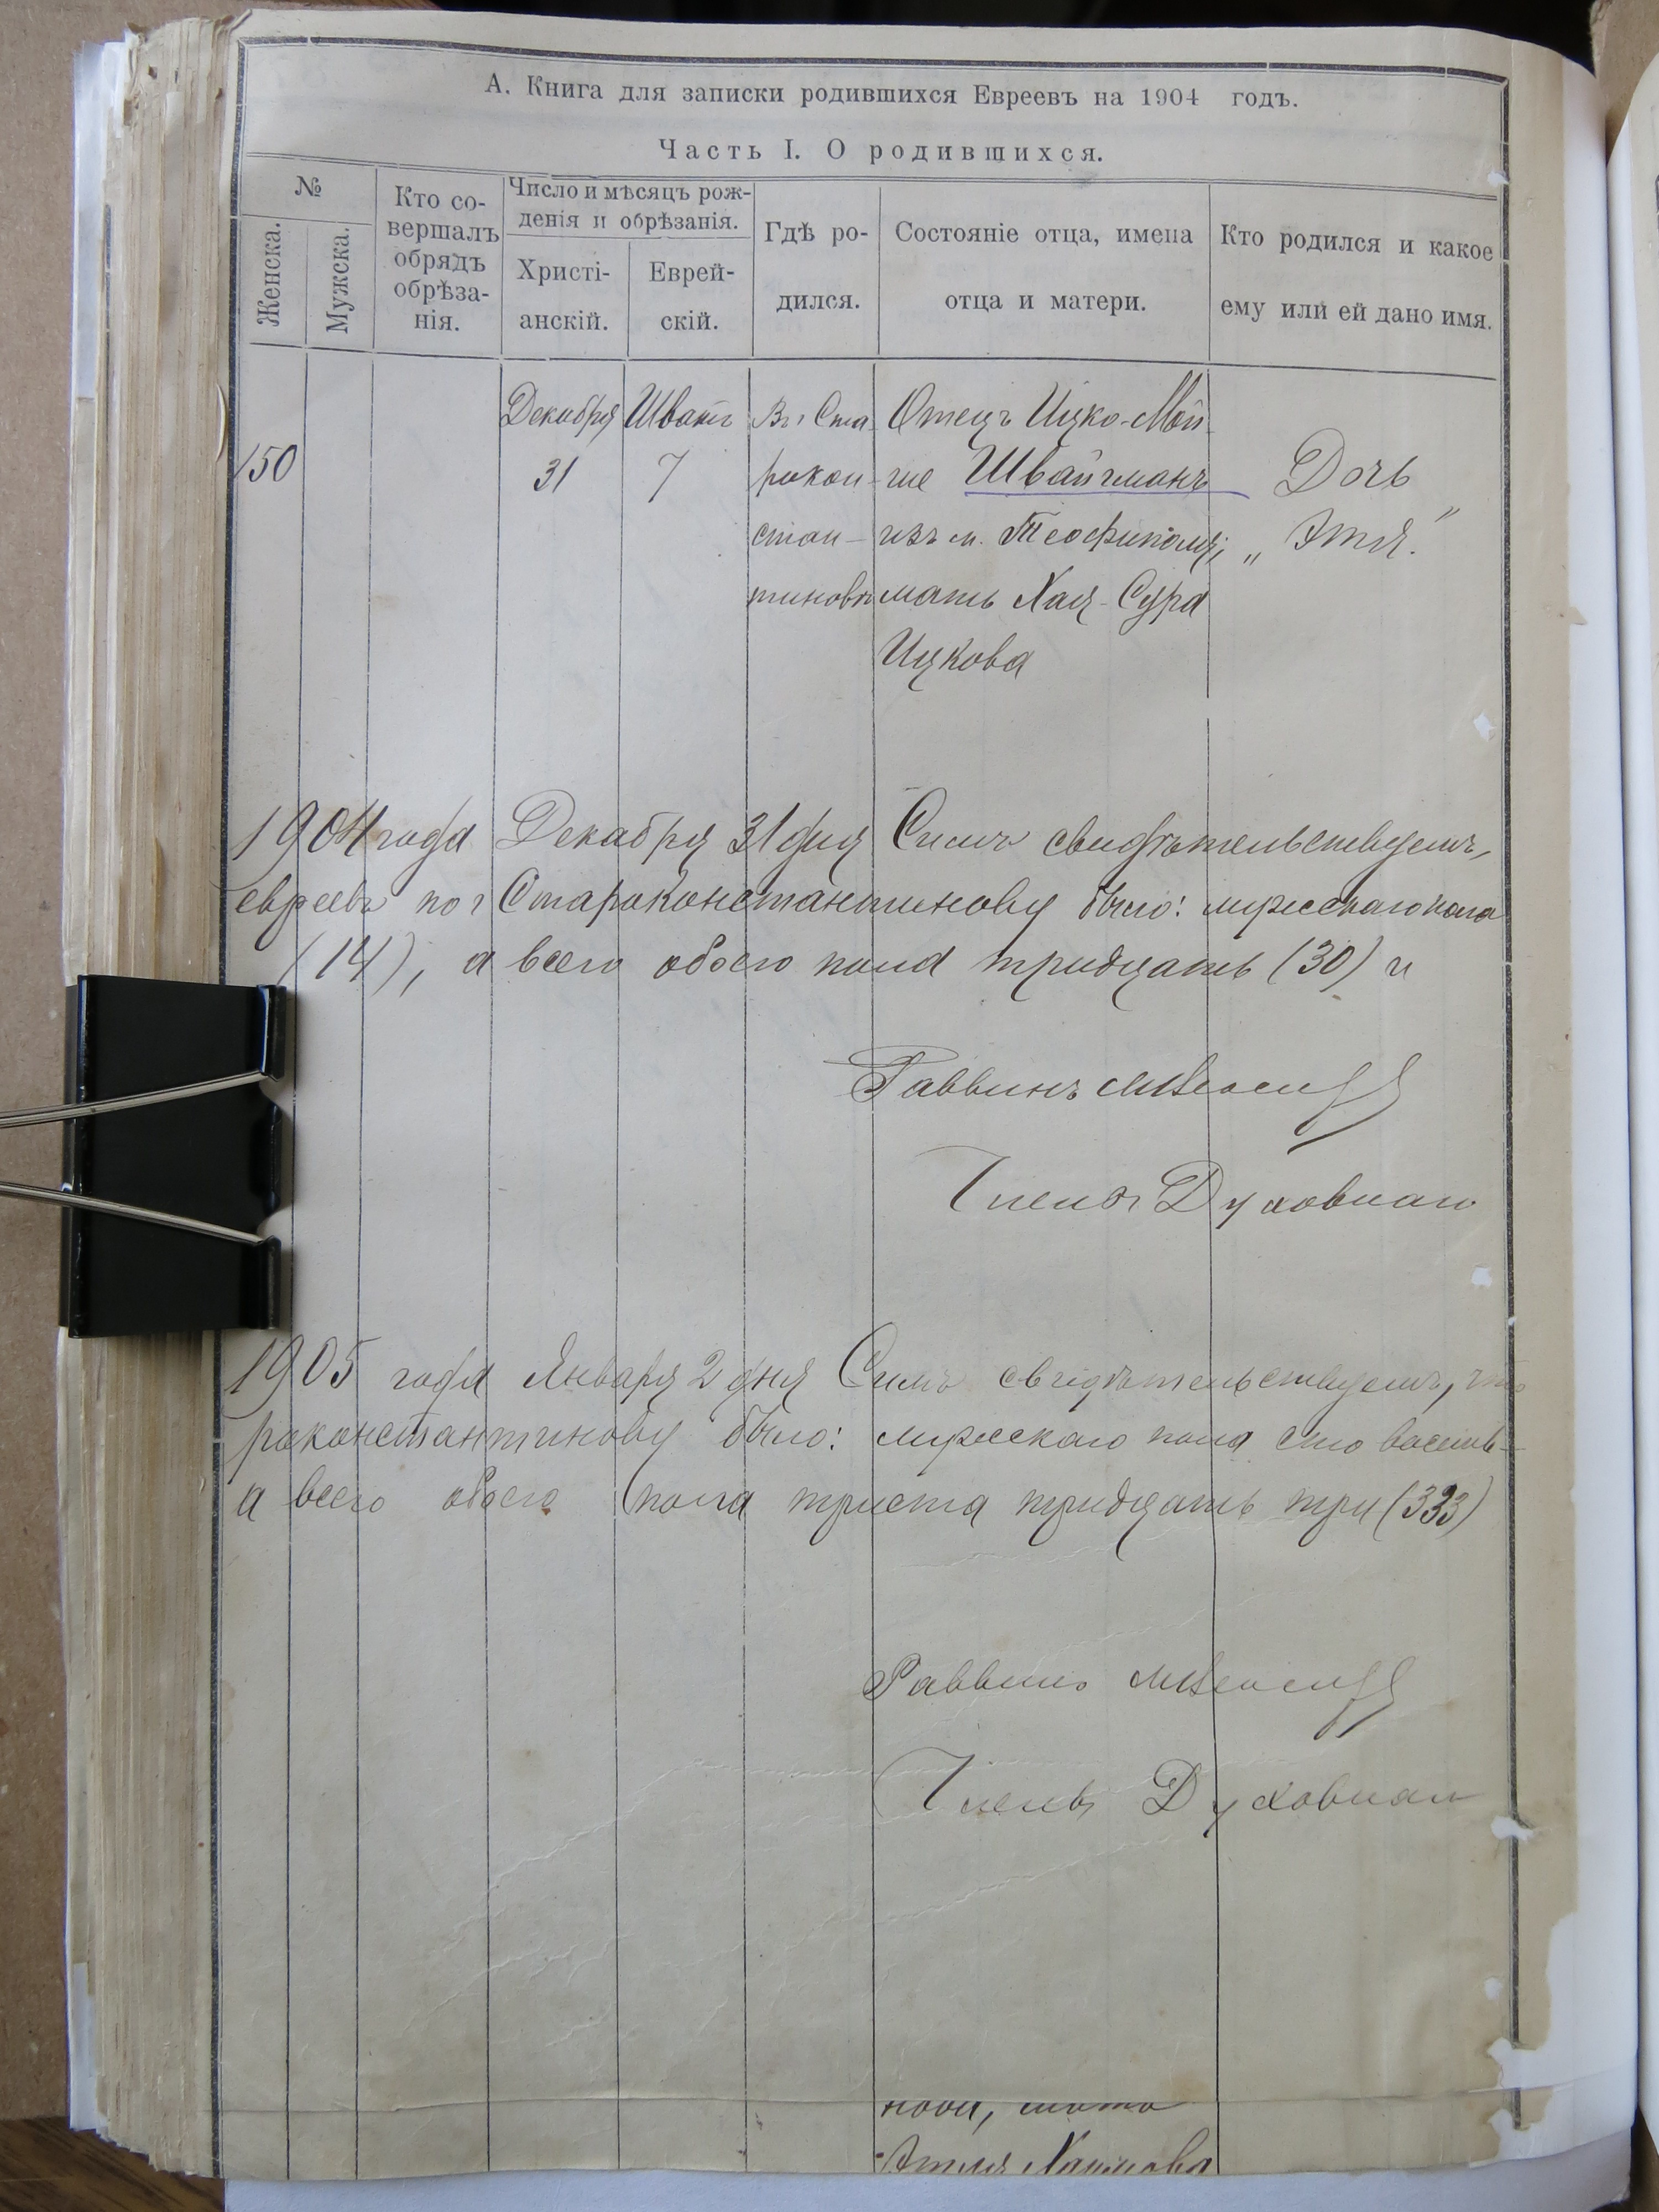 А. Книга для записки родившихся Евреевъ на 1904 годъ.
Часть I. О родившихся.
№
Женска.
Мужска.
Кто со-
вершалъ
обрядъ
обрѣза-
нія.
Число и мѣсяцъ рож-
денія и обрѣзанія.
Христі-
анскій.
Еврей-
скій.
Гдѣ ро-
дился.
Состояніе отца, имена
отца и матери.
Кто родился и какое
ему или ей дано имя.
150
Декабря
31
Шватъ
7
Въ Ста-
рокон-
стан-
тиновѣ
Отецъ Ицко-Мой-
ше Швайгманъ
изъ м. Теофиполя;
мать Хая-Сура
Ицкова
Дочь
„Этя."
1904 года Декабря 31 дня Симъ свидѣтельствуемъ,
евреевъ по г Староконстантинову было: мужескаго пола
(14), а всего обоего пола тридцать (30) и
Раввинъ
Члены Духовнаго
1905 года Января 2 дня Симъ свидѣтельствуемъ, что
роконстантинову было: мужескаго пола сто восемь-
а всего обоего пола триста тридцать три (333)
Раввинъ
Члены Духовнаго
мать
Хаимова